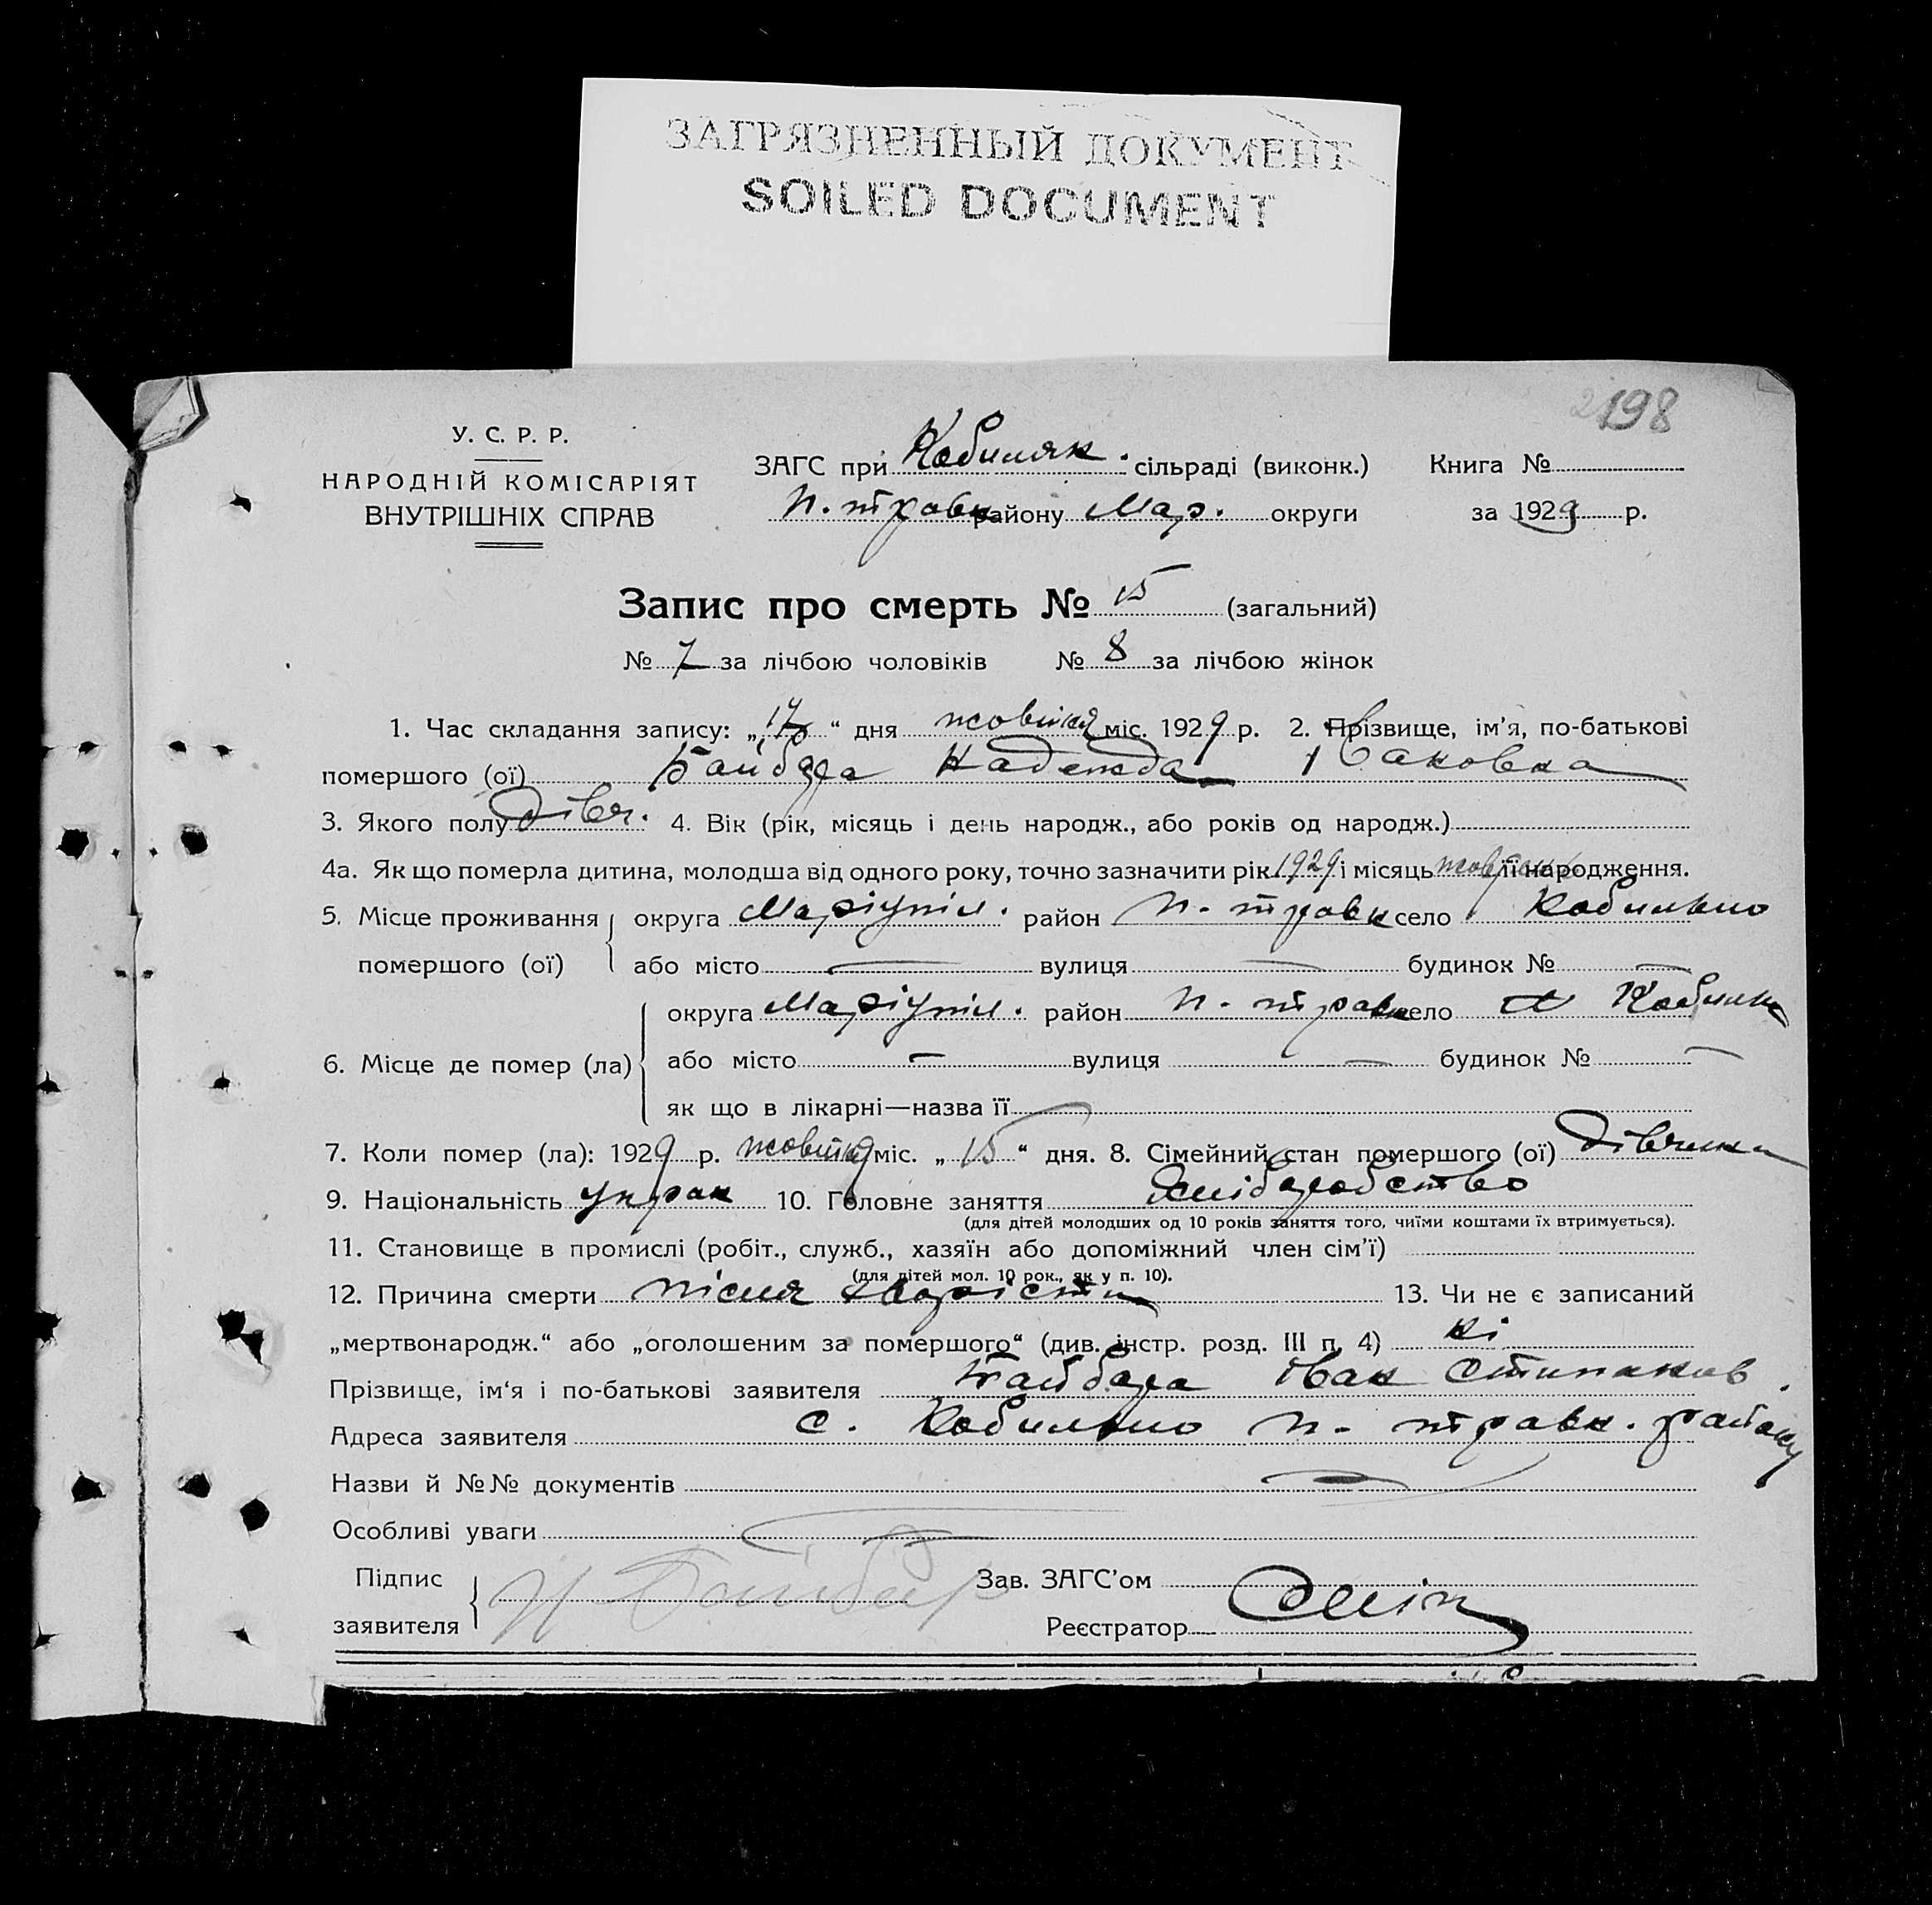 ЗАГРЯЗНЕННЫЙ ДОКУМЕНТ
SOILED DOCUMENT
198
У. С. Р. Р.
НАРОДНІЙ КОМІСАРІЯТ
ВНУТРІШНІХ СПРАВ
ЗАГС при Кобиляк. сільраді (виконк.) Книга №
П. травн району Мар. округи за 1929 р.
Запис про смерть № 15 (загальний)
№ 7 за лічбою чоловіків № 8 за лічбою жінок
1. Час складання запису: „ “ дня жовтня міс. 1929 р. 2. Прізвище, ім’я, по-батькові
помершого (ої) Байбара Надежда Івановна
3. Якого полу дівч. 4. Вік (рік, місяць і день народж., або років од народж.)
4а. Як що померла дитина, молодша від одного року, точно зазначити рік 1929 і місяць її народження.
5. Місце проживання округа Маріупіл. район П. травн село Кобильно
помершого (ої) або місто — вулиця — будинок № —
6. Місце де помер (ла) округа Маріупіл. район П. травн село Кобильно
або місто — вулиця — будинок № —
як що в лікарні—назва її
7. Коли помер (ла): 1929 р. жовтня міс. „ 15 “ дня. 8. Сімейний стан помершого (ої) дівчина
9. Національність Укран 10. Головне заняття хліборобство
(для дітей молодших од 10 років заняття того, чиїми коштами їх втримується).
11. Становище в промислі (робіт., служб., хазяїн або допоміжний член сім’ї)
(для дітей мол. 10 рок., як у п. 10).
12. Причина смерти після 13. Чи не є записаний
„мертвонародж.“ або „оголошеним за помершого“ (див. інстр. розд. III п. 4) ні
Прізвище, ім‘я і по-батькові заявителя Байбара Іван Степанов.
Адреса заявителя с. Кобильно П. травн. району
Назви й №№ документів —
Особливі уваги
Підпис
заявителя
И Байбар
Зав. ЗАГС’ом
Реєстратор